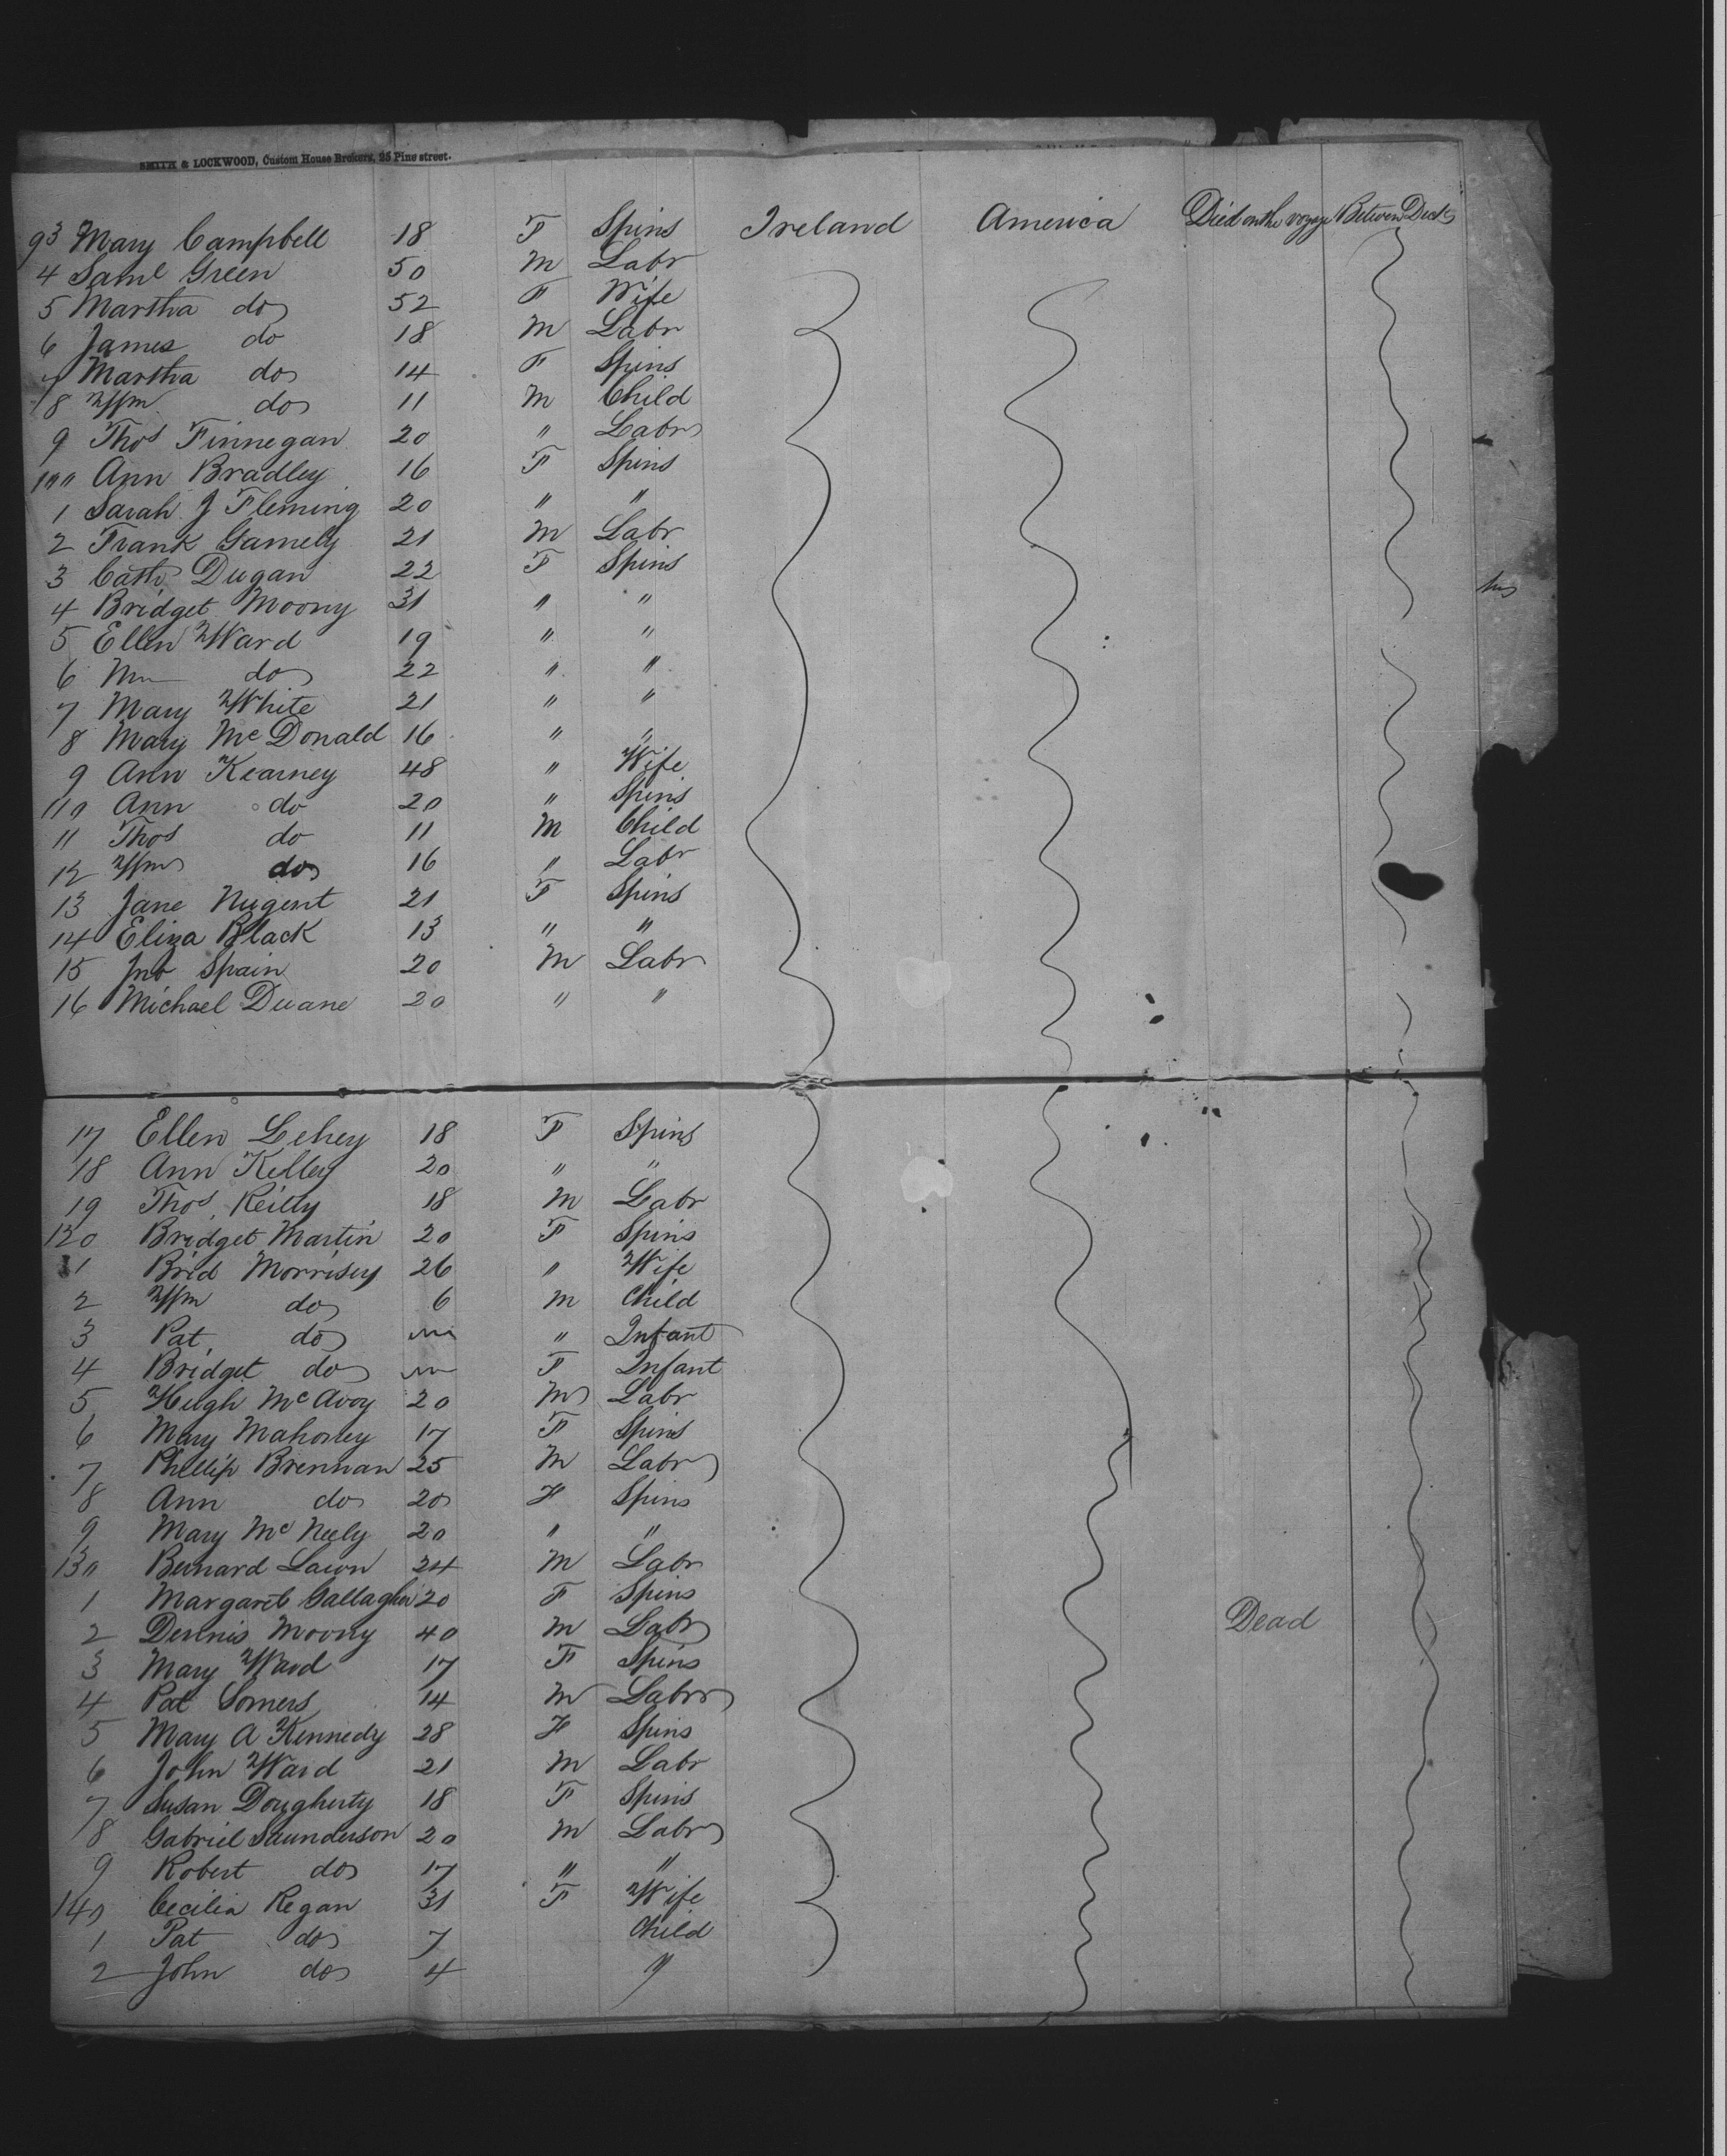 SMITH & LOCKWOOD, Custom House Brokers, 25 Pine street.
93 Mary Campbell 18 F Spins Ireland America Died on the voyage Between Decks
4 Saml Green 50 M Labr
5 Martha do 52 F Wife
6 James do 18 M Labr
7 Martha do 14 F Spins
8 Wm do 11 M Child
9 Thos Finnegan 20 " Labr
100 Ann Bradley 16 F Spins
1 Sarah J Fleming 20 " "
2 Frank Gamely 21 M Labr
3 Cath Dugan 22 F Spins
4 Bridget Moony 31 " "
5 Ellen Ward 19 " "
6 do 22 " "
7 Mary White 21 " "
8 Mary McDonald 16 " "
9 Ann Kearney 48 " Wife
110 Ann do 20 " Spins
11 Thos do 11 M Child
12 Wm do 16 " Labr
13 Jane Nugent 21 F Spins
14 Eliza Black 13 " "
15 Jno Spain 20 M Labr
16 Michael Duane 20 " "
17 Ellen Lehey 18 F Spins
18 Ann Kelley 20 " "
19 Thos Reilly 18 M Labr
120 Bridget Martin 20 F Spins
1 Brid Morrisey 26 " Wife
2 Wm do 6 M Child
3 Pat do " Infant
4 Bridget do F Infant
5 Hugh McAvoy 20 M Labr
6 Mary Mahoney 17 F Spins
7 Phillip Brennan 25 M Labr
8 Ann do 20 F Spins
9 Mary McNeely 20 " "
130 Bernard Lawn 24 M Labr
1 Margaret Gallagher 20 F Spins
2 Dennis Moony 40 M Labr Dead
3 Mary Ward 17 F Spins
4 Pat Somers 14 M Labr
5 Mary A Kennedy 28 F Spins
6 John Ward 21 M Labr
7 Susan Dougherty 18 F Spins
8 Gabriel Saunderson 20 M Labr
9 Robert do 17 " "
140 Cecilia Regan 31 F Wife
1 Pat do 7 Child
2 John do 4 "